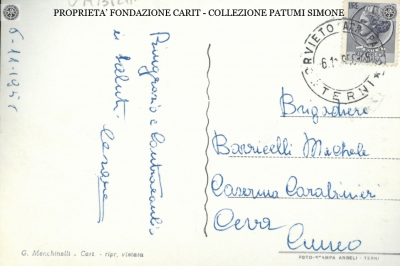 PROPRIETA' FONDAZIONE CARIT - COLLEZIONE PATUMI SIMONE
6-11-195
Ringrazio e contraccambio
i saluti
Cesare
ORVIETO
TERNI
Brigadiere
Barricelli Michele
Caserma Carabinieri
Ceva
Cuneo
G. Menchinelli - Cart. - ripr. vietata
FOTO-STAMPA ANGELI - TERNI